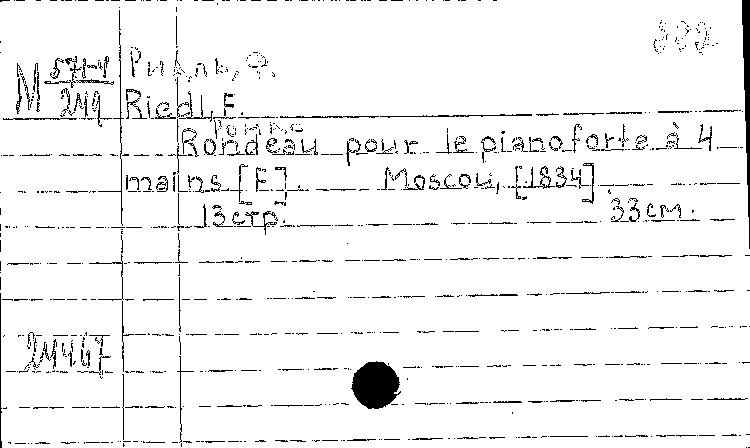 332
M 571-4/249
Ридль, Ф.
Riedl, F.
Rondeau pour le pianoforte à 4
mains [F]. Moscou, [1834].
13 стр. 33 см.
24467